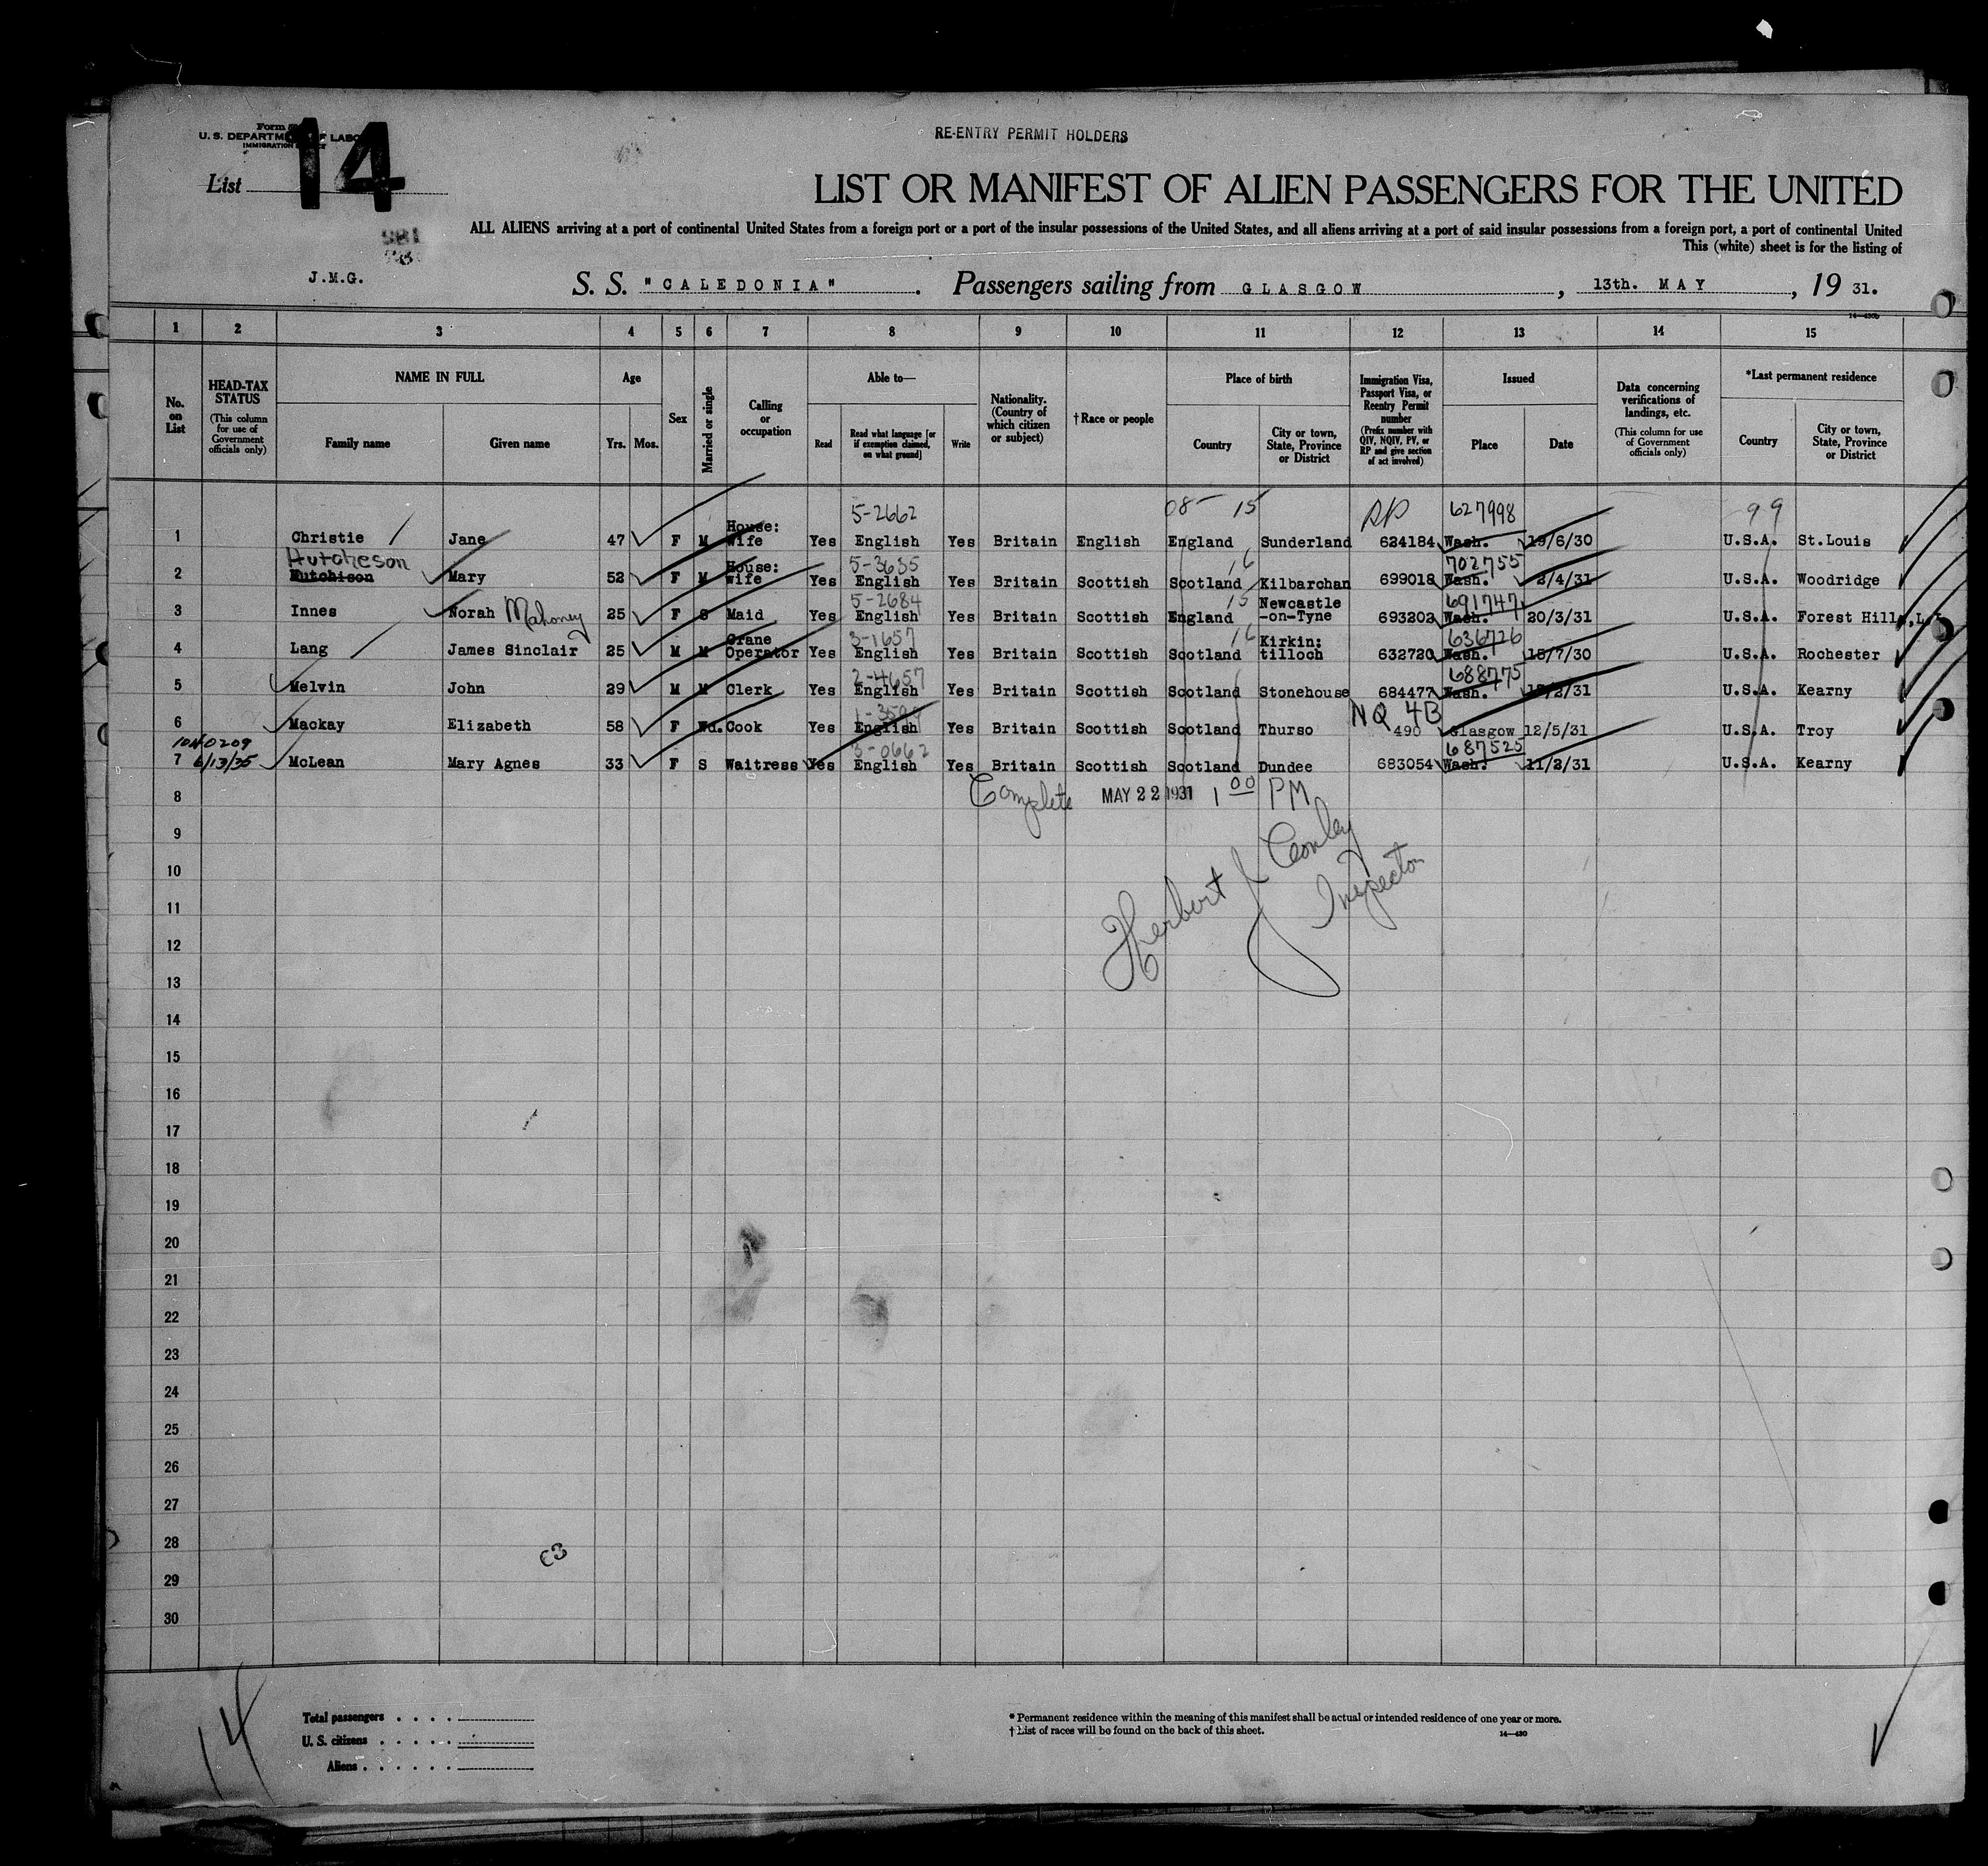 RE-ENTRY PERMIT HOLDERS
Form
U. S. DEPARTMENT OF LABOR
IMMIGRATION
List 14
LIST OR MANIFEST OF ALIEN PASSENGERS FOR THE UNITED
ALL ALIENS arriving at a port of continental United States from a foreign port or a port of the insular possessions of the United States, and all aliens arriving at a port of said insular possessions from a foreign port, a port of continental United
This (white) sheet is for the listing of
J.M.G.
S. S. "CALEDONIA" . Passengers sailing from GLASGOW , 13th. MAY , 19 31.
14-430b
1 2 3 4 5 6 7 8 9 10 11 12 13 14 15
No. on List
HEAD-TAX STATUS (This column for use of Government officials only)
NAME IN FULL
Family name
Given name
Age
Yrs. Mos.
Sex
Married or single
Calling or occupation
Able to—
Read
Read what language [or if exemption claimed, on what ground]
Write
Nationality. (Country of which citizen or subject)
† Race or people
Place of birth
Country
City or town, State, Province or District
Immigration Visa, Passport Visa, or Reentry Permit number (Prefix number with QIV, NQIV, PV, or RP and give section of act involved)
Issued
Place
Date
Data concerning verifications of landings, etc. (This column for use of Government officials only)
*Last permanent residence
Country
City or town, State, Province or District
5-2662 08- 15 RP 627998 99
1 Christie Jane 47 F M House: wife Yes English Yes Britain English England Sunderland 624184 Wash. 19/6/30 U.S.A. St.Louis
Hutcheson 5-3635 16 702755
2 Hutchison Mary 52 F M House: wife Yes English Yes Britain Scottish Scotland Kilbarchan 699018 Wash. 2/4/31 U.S.A. Woodridge
5-2684 15 691747
3 Innes Norah Mahoney 25 F S Maid Yes English Yes Britain Scottish England Newcastle -on-Tyne 693202 Wash. 20/3/31 U.S.A. Forest Hills,L.I.
3-1657 16 636726
4 Lang James Sinclair 25 M M Crane Operator Yes English Yes Britain Scottish Scotland Kirkin: tilloch 632720 Wash. 15/7/30 U.S.A. Rochester
2-4657 688775
5 Melvin John 29 M M Clerk Yes English Yes Britain Scottish Scotland Stonehouse 684477 Wash. /2/31 U.S.A. Kearny
NQ 4B
6 Mackay Elizabeth 58 F Wd. Cook Yes English Yes Britain Scottish Scotland Thurso 490 Glasgow 12/5/31 U.S.A. Troy
6/13/35 3-0662 687525
7 McLean Mary Agnes 33 F S Waitress Yes English Yes Britain Scottish Scotland Dundee 683054 Wash. 11/2/31 U.S.A. Kearny
8 Complete MAY 22 1931 1 00 PM
9
10 Herbert J Conley
11 Inspector
12
13
14
15
16
17
18
19
20
21
22
23
24
25
26
27
28
29
30
14
Total passengers . . . .
U. S. citizens . . . . .
Aliens . . . . . .
* Permanent residence within the meaning of this manifest shall be actual or intended residence of one year or more.
† List of races will be found on the back of this sheet.
14-430